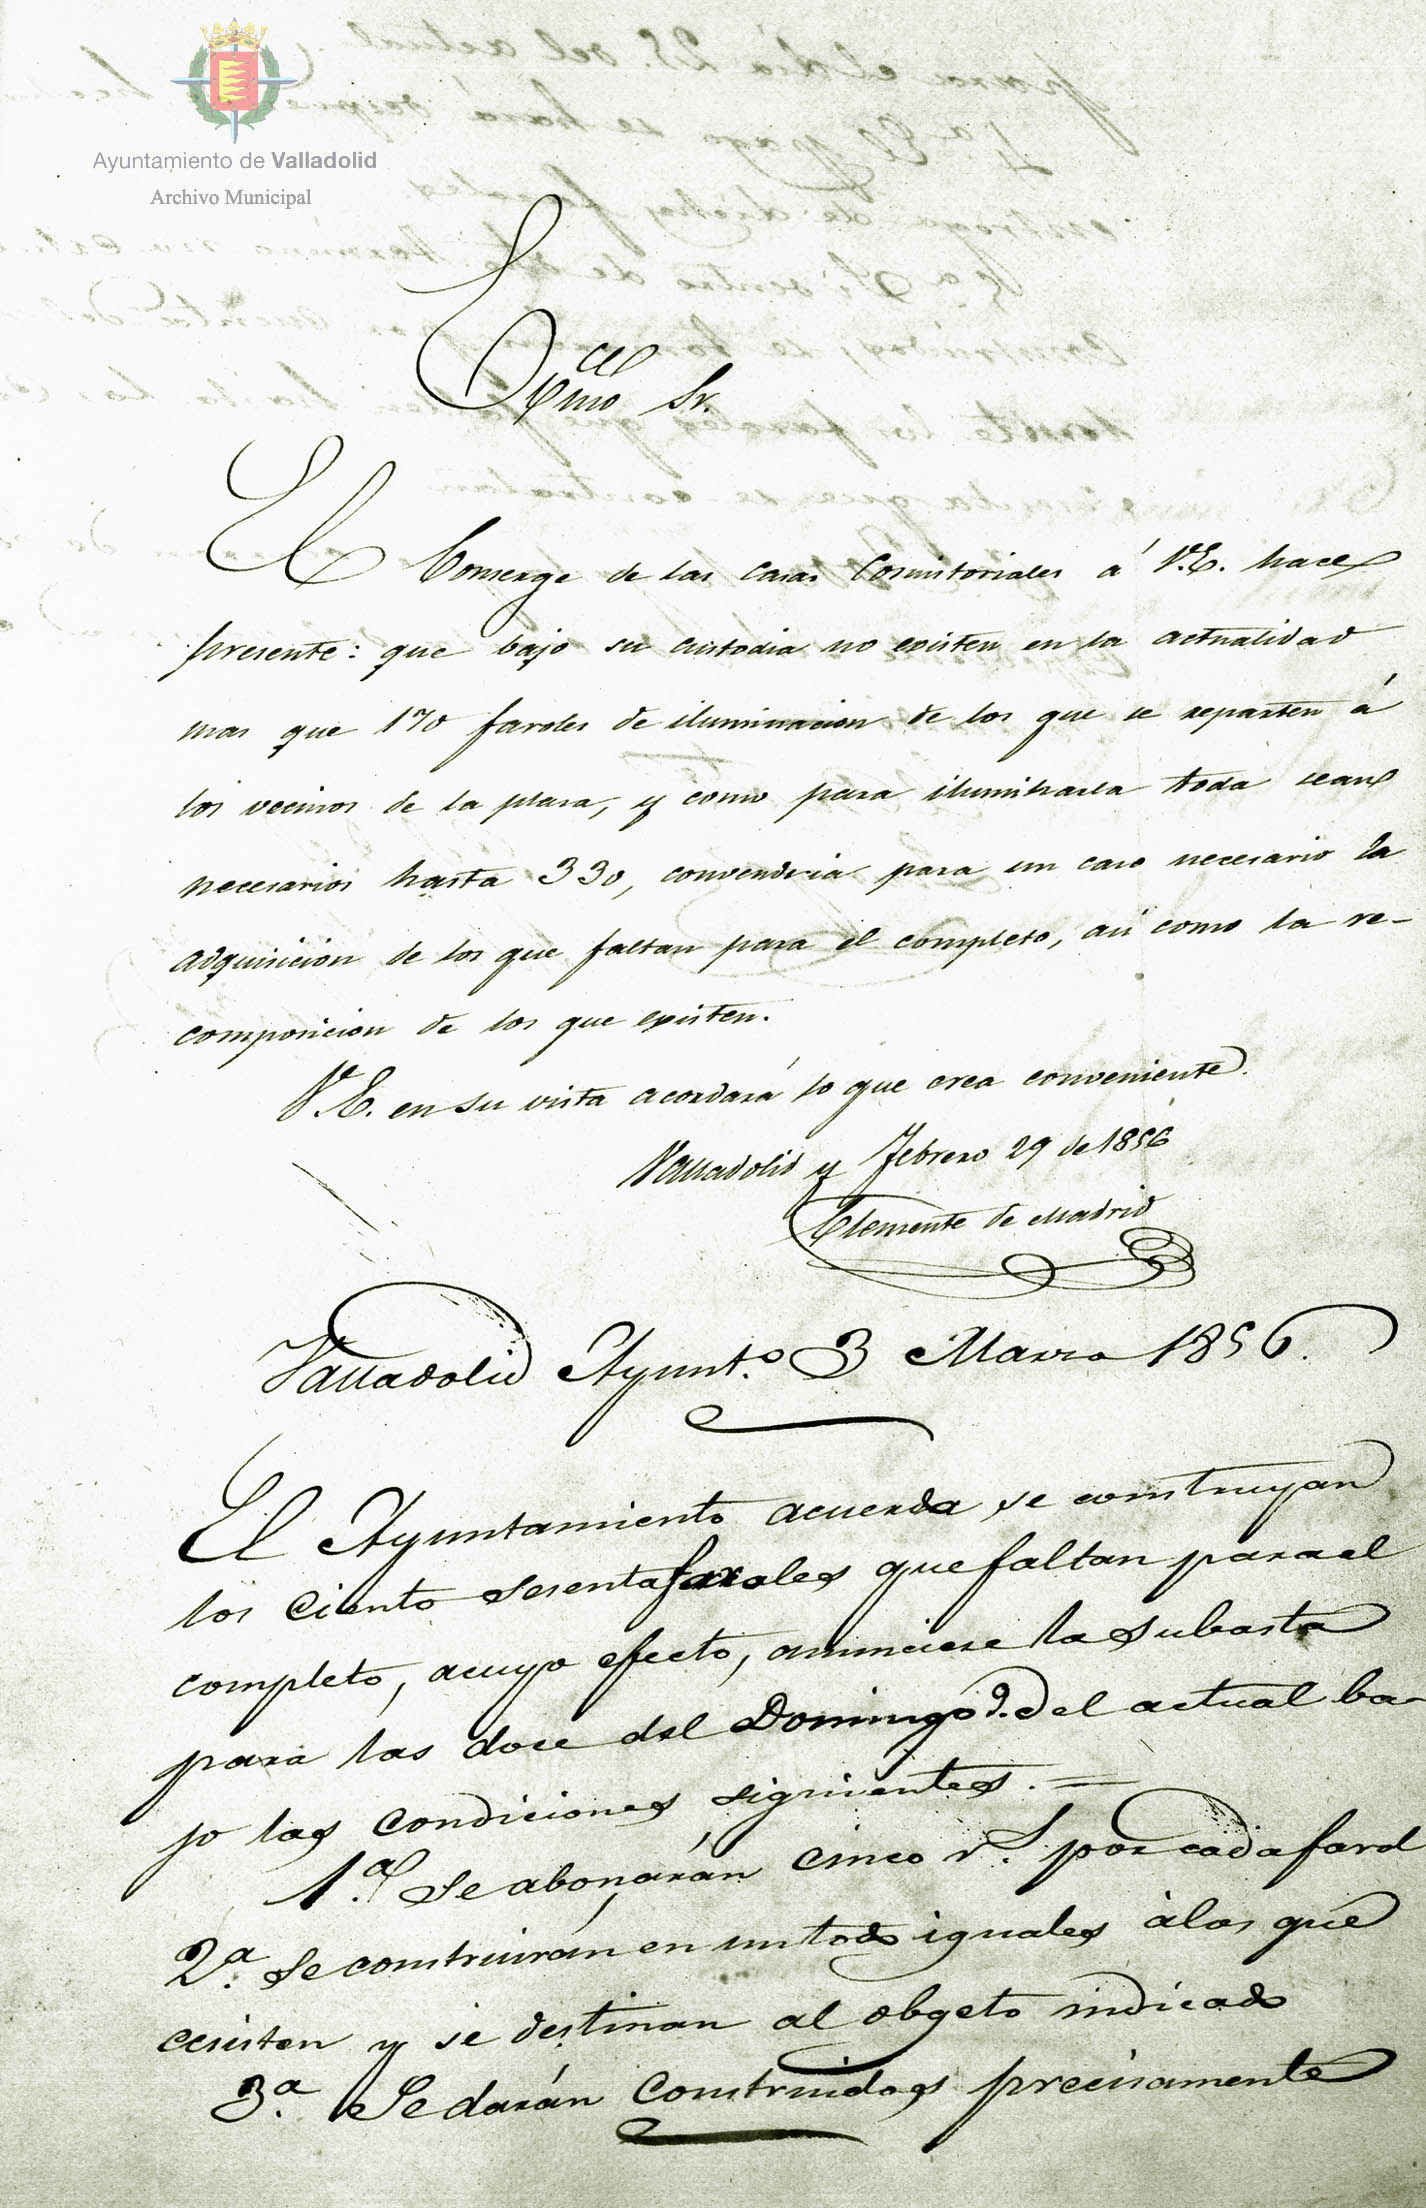 Ayuntamiento de Valladolid
Archivo Municipal
Excmo Sr.
El Conserge de las casas Consistoriales á V.E. hace
presente: que bajo su custodia no existen en la actualidad
mas que 170 faroles de iluminacion de los que se reparten á
los vecinos de la plaza, y como para iluminarla toda sean
necesarios hasta 330, convendria para un caso necesario la
adquisicion de los que faltan para el completo, asi como la re-
composicion de los que existen.
V.E. en su vista acordará lo que crea conveniente.
Valladolid y Febrero 29 de 1856
Clemente de Madrid
Valladolid Ayunt.o 3 Marzo 1856.
El Ayuntamiento acuerda se construyan
los ciento sesenta faroles que faltan para el
completo, a cuyo efecto, anunciese la subasta
para las doce del Domingo 9. del actual ba-
jo las condiciones siguientes. =
1.ª Se abonarán cinco r.s por cada farol
2.ª Se construirán en un todo iguales à los que
ecsisten y se destinan al obgeto indicado
3.ª Se darán construidos precisamente